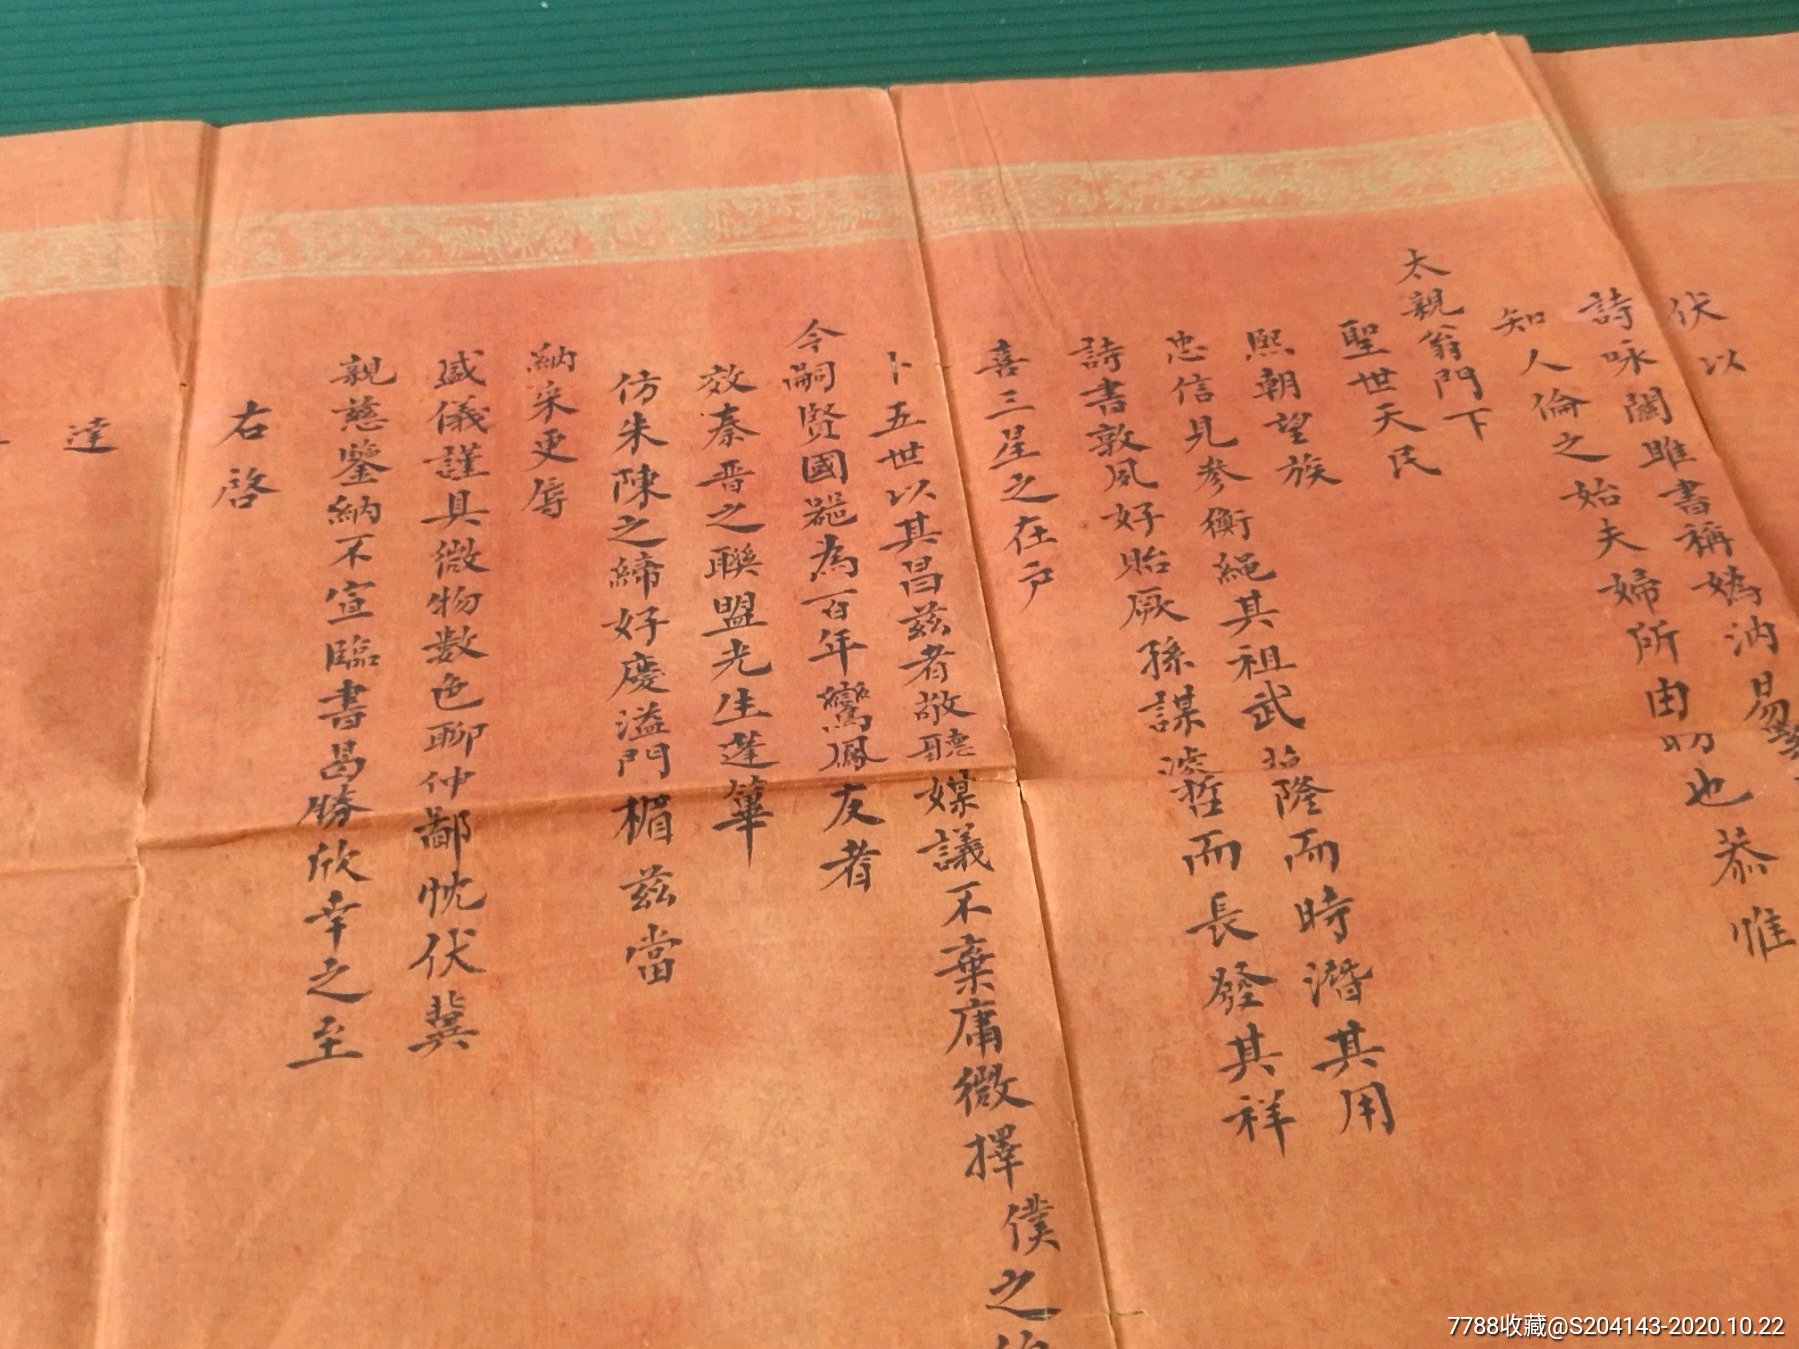 伏以
詩咏關雎書稱嬀汭易
知人倫之始夫婦所由昉也恭惟
太親翁門下
聖世天民
熙朝望族
忠信見參衡繩其祖武 隆而時潛其用
詩書敦夙好貽厥孫謀濬哲而長發其祥
喜三星之在户
卜五世以其昌茲者敬聽媒議不棄庸微擇僕之
令嗣賢國器為百年鸞鳳友者
效秦晋之聯盟光生蓬蓽
仿朱陳之締好慶溢門楣茲當
納采更辱
盛儀謹具微物数色聊伸鄙忱伏冀
親慈鑒納不宣臨書曷勝欣幸之至
右啓
達
7788收藏@S204143-2020.10.22